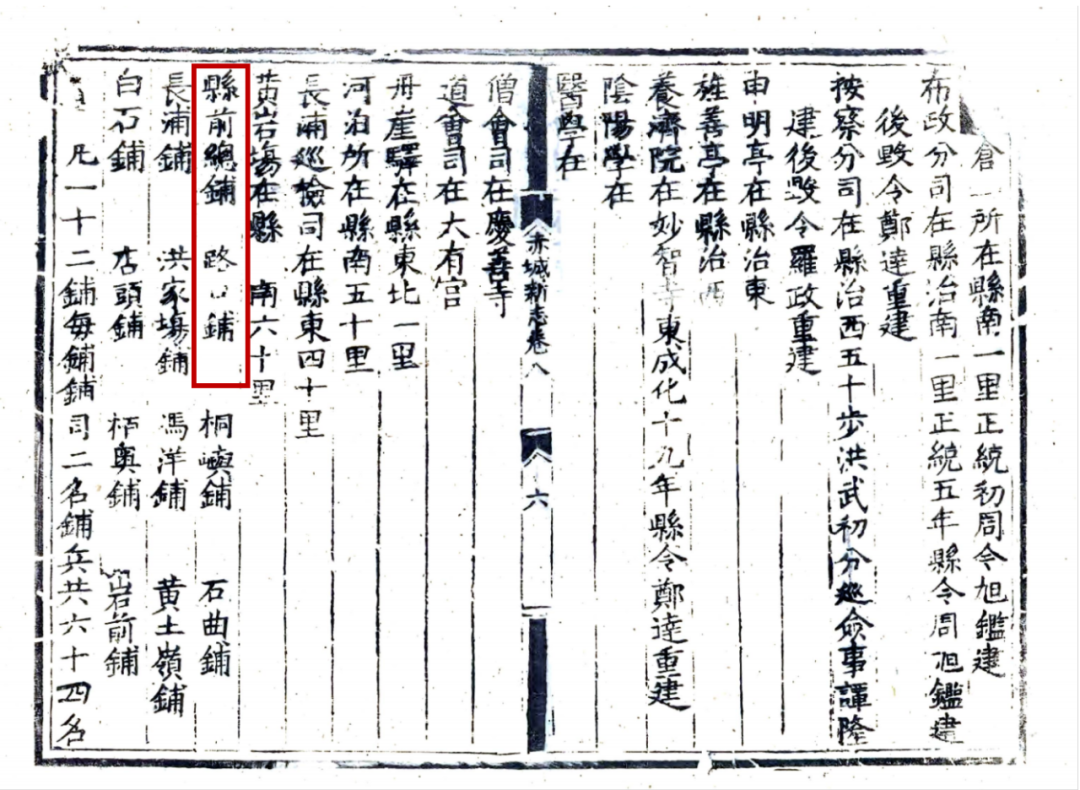 倉一所在縣南一里正統初周令旭鑑建
布政分司在縣治南一里正統五年縣令周旭鑑建
後毀令鄭達重建
按察分司在縣治西五十步洪武初分廵僉事諢隆
建後毀令羅政重建
申明亭在縣治東
旌善亭在縣治西
養濟院在妙智寺東成化十九年縣令鄭達重建
陰陽學在
醫學在
赤城新志卷八
六
僧會司在慶善寺
道會司在大有宫
丹崖驛在縣東北一里
河泊所在縣南五十里
長浦廵檢司在縣東四十里
黄岩場在縣南六十里
縣前總鋪 路口鋪 桐嶼鋪 石曲鋪
長浦鋪 洪家場鋪 馮洋鋪 黄土嶺鋪
白石鋪 店頭鋪 奥鋪 岩前鋪
凡一十二鋪每鋪鋪司二名鋪兵共六十四名